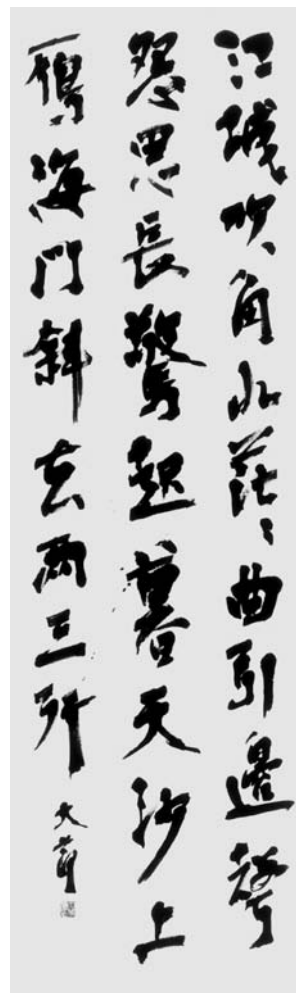 江城吹角水茫々曲引邊聲
怨思長驚起暮天沙上
鴈海門斜去兩三行